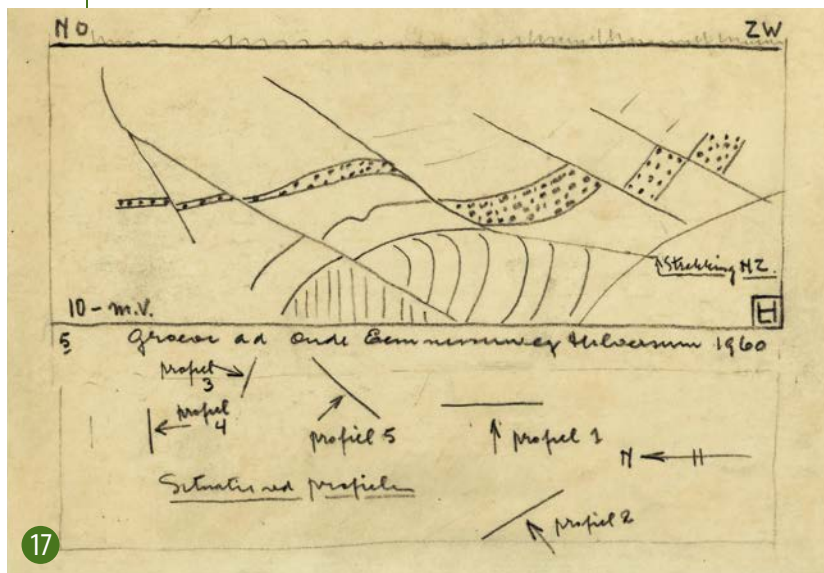 NO ZW
Strekking NZ.
10 - m.V.
H
5 Groeve ad Oude Eemnesserweg Hilversum 1960
profiel 3
profiel 4
profiel 5
profiel 1
N
Situatie vd profielen
profiel 2
17